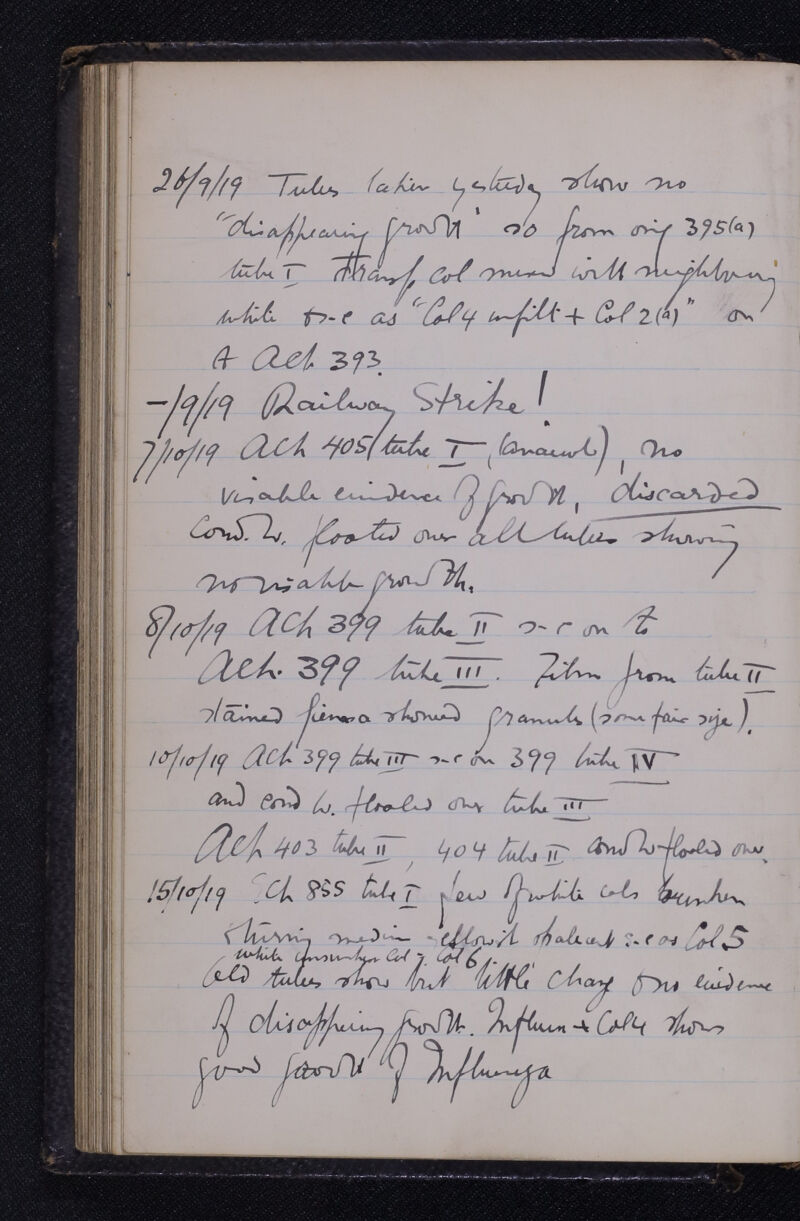 26/9/19 Tubes taken yesterday show no
"disappearing growth" so from orig 395(a)
tube I Transf col mixed with neighbouring
white & s-c as "Col 4 infilt + Col 2(a)" on
A Ach 393.
-/9/19 Railway Strike!
7/10/19 Ach 405 tube I (anaerob), no
visable evidence of growth, discarded
Cond. W. floated over all tubes showing
no visable growth.
8/10/19 Ach 399 tube II s-c on to
Ach. 399 tube III. Film from tube II
stained giemsa showed granules (some fair size).
10/10/19 Ach 399 tube III s-c on 399 tube IV
and cond W. floated over tube III
Ach 403 tube II, 404 tube II cond W floated over.
15/10/19 Sch 855 tube I few of white cols sunken
medium yellowish s-c as Col 5
white unsunken Col 7 Col 6
Old tubes show but little change & no evidence
of disappearing growth. Influen + Col 4 shows
good growth of Influenza